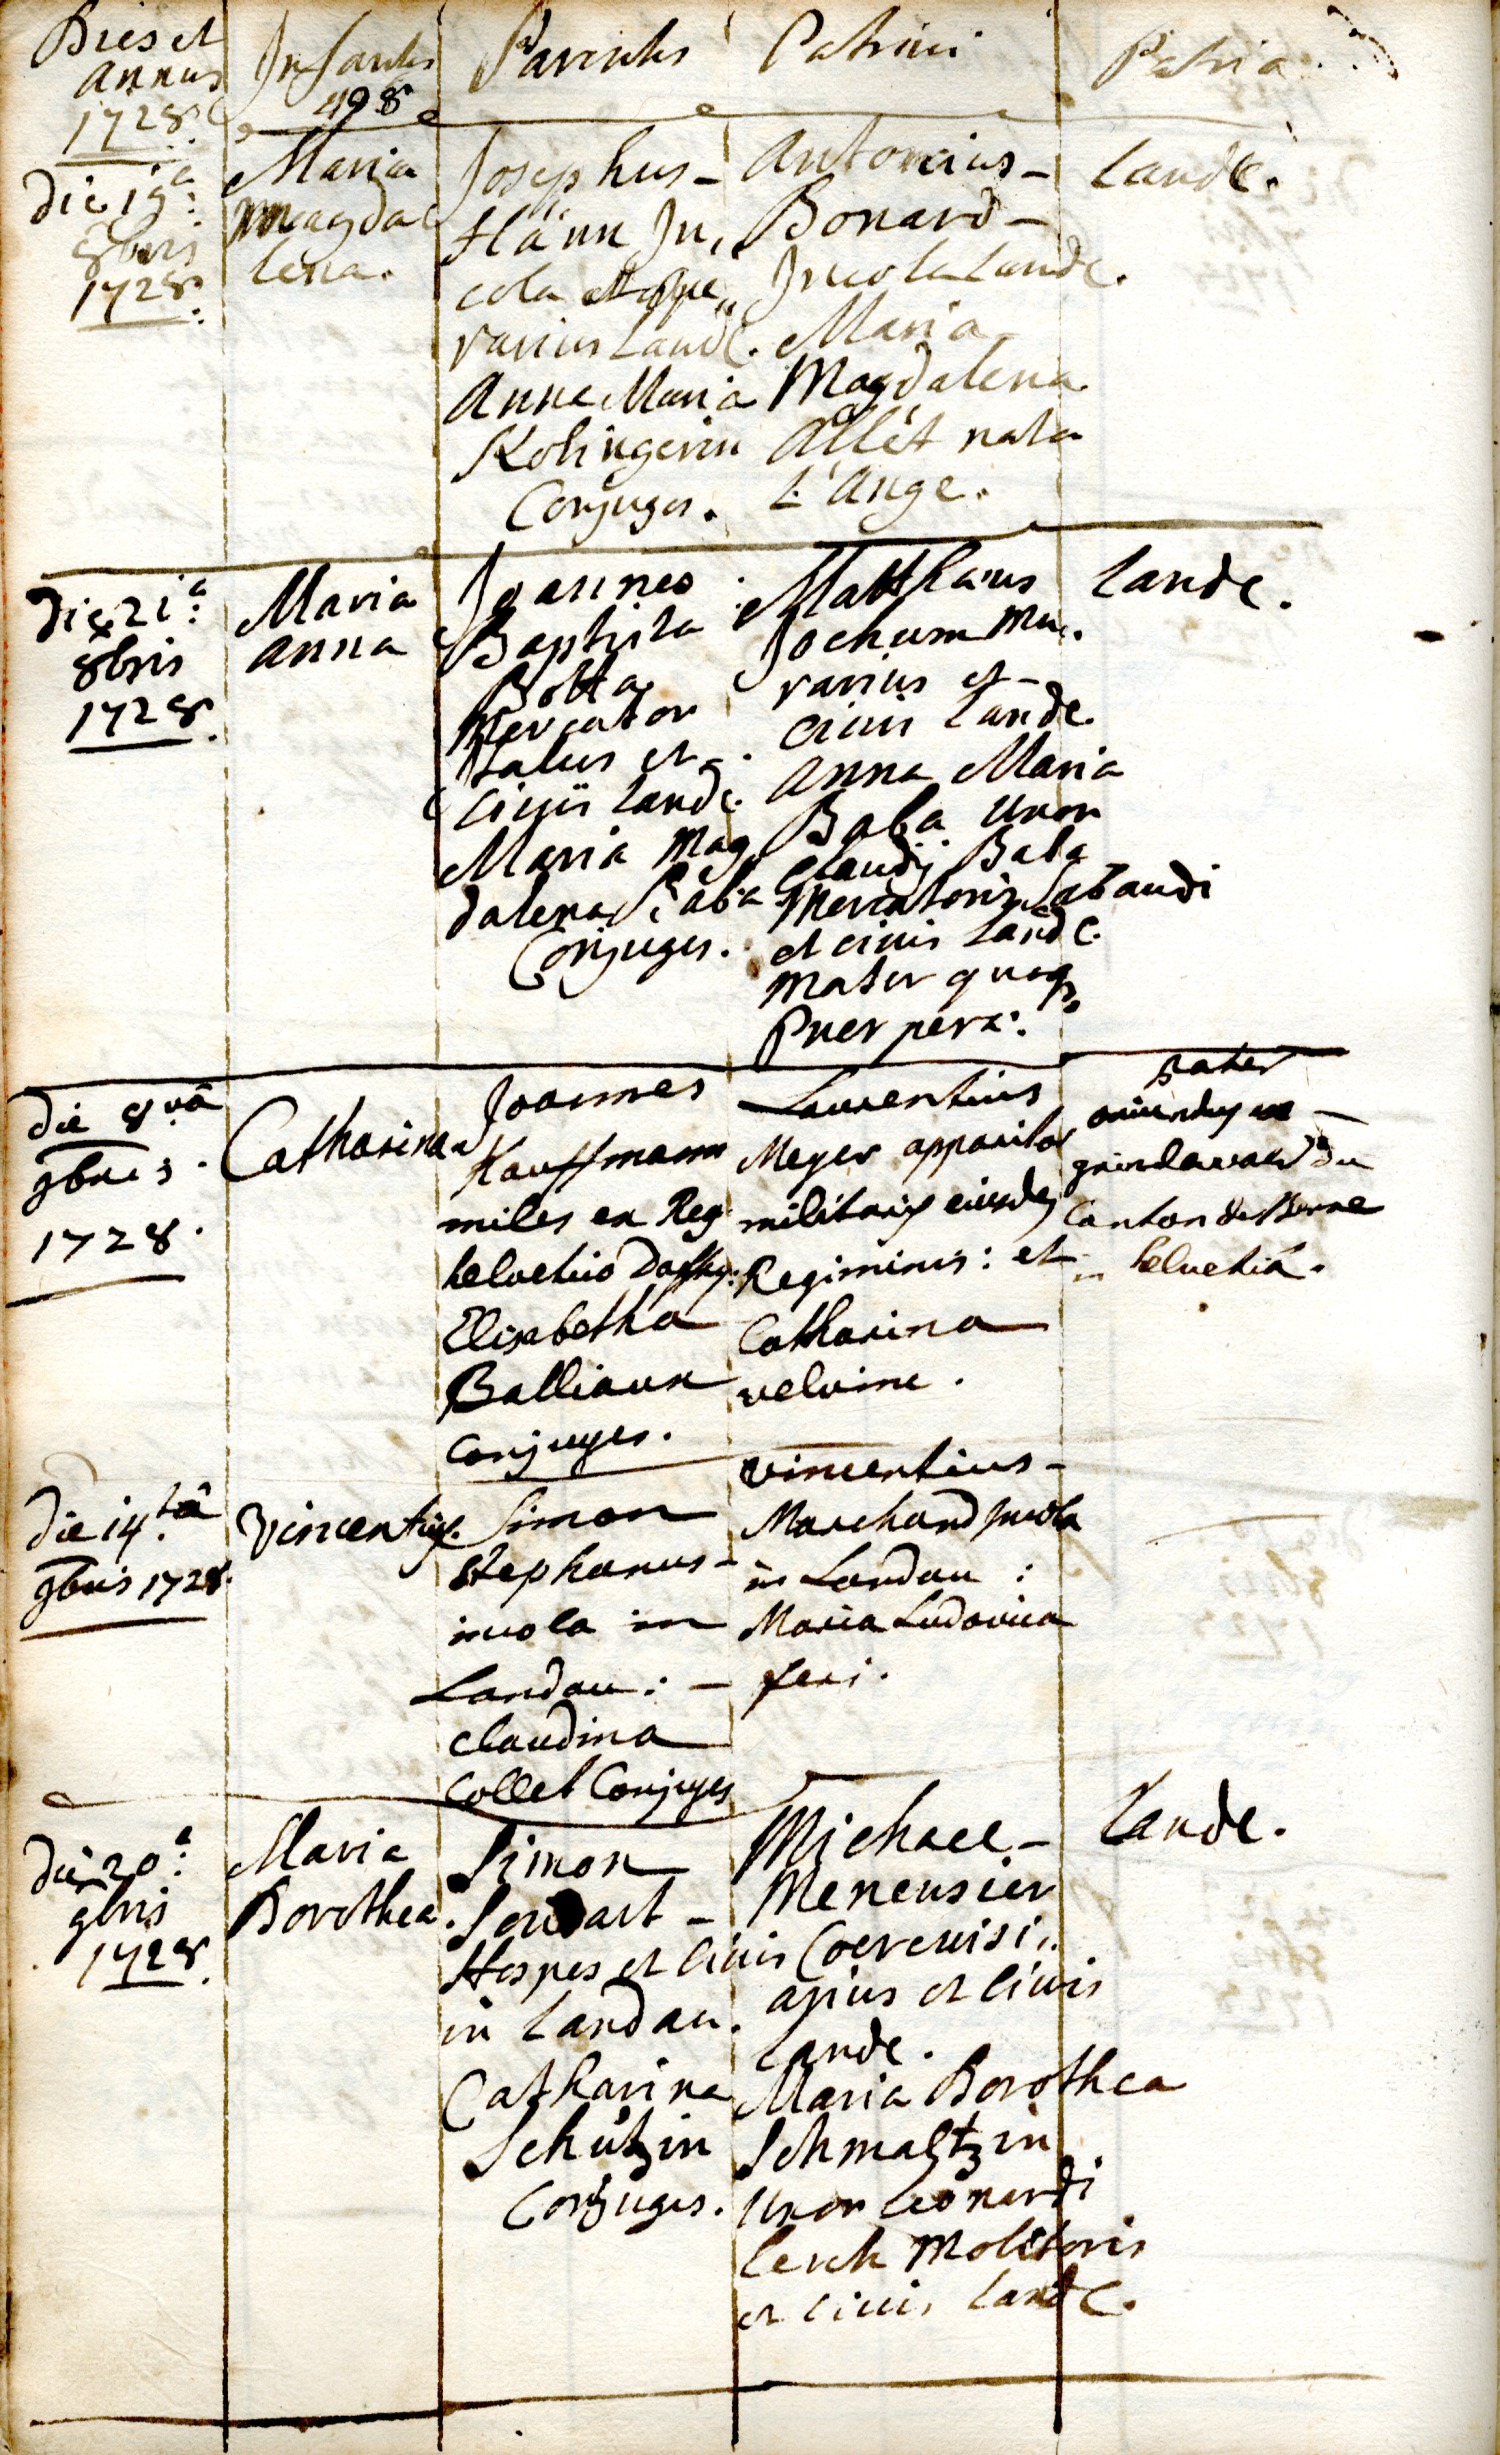 Dies et
annus
1728
Infantes
498
Parentes
Patrini
Patria
die 19a:
8bris
1728.
Maria
Magda
lena.
Josephus -
Hänn In,
cola et ope„
rarius Landc.
Anna Maria
Kolingerin
Conjuges.
Antonius -
Bonard -
Incola Landc.
Maria
Magdalena
Allét nata
L'Ange.
Landc.
die 21a:
8bris
1728.
Maria
Anna
Joannes
Baptista
Botta
Mercator
Italus et
civis Landc.
Maria Mag
dalena Baba
Conjuges.
Matthaeus
Jochum Mu.
rarius et -
civis Landc.
Anna Maria
Baba uxor
Claudij Baba
Mercatoris Sabaudi
et civis Landc.
Mater quoq3
Puerpera.
Landc.
die 8va
9bris.
1728.
Catharina
Joannes
Kauffmann
miles ex Reg
helvetico
Elisabetha
Balliaux
conjuges.
Laurentius
Meyer apparitor
militaris eiusdem
Regiminis: et
Catharina
velvine.
Pater
oriundus ex -
grindlewald du
Canton de Berne
in helvetia.
die 14.ta
9bris 1728.
Vincentius.
Simon
Stephanus -
incola in
Landau: -
Claudina
Collet Conjuges
Vincentius -
Marchand incola
in Landau:
Maria Ludovica
feri.
die 20a:
9bris
1728.
Maria
Dorothea.
Simon
Hospes et civis
in Landau.
Catharina
Schützin
Conjuges.
Michael -
Meneusier
Coerevisi„
arius et civis
Landc.
Maria Dorothea
Schmaltzin
uxor Leonardi
Lerch Molitoris
et civis Landc.
Landc.